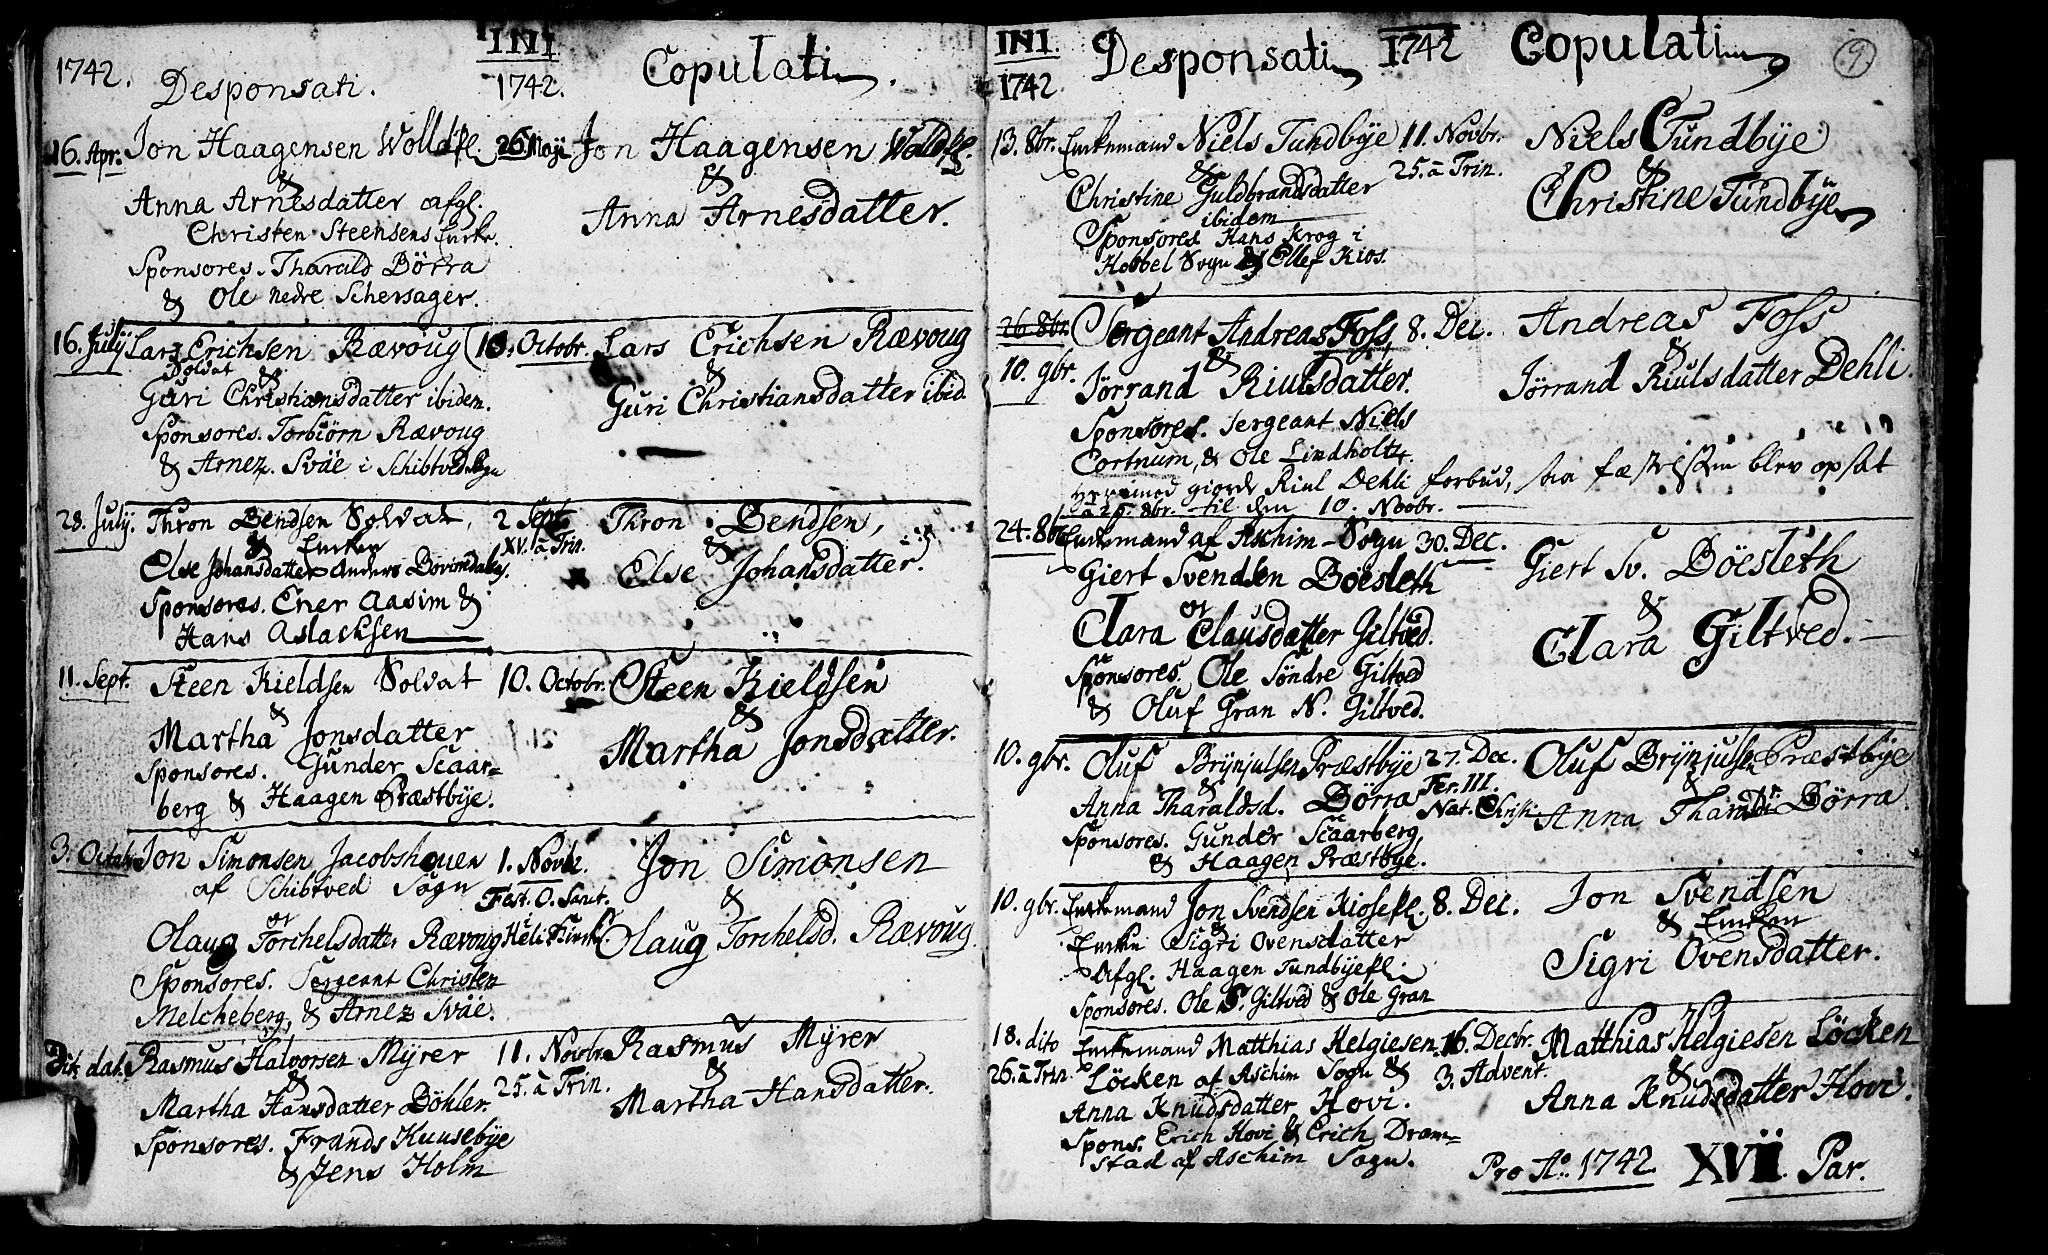 1742.
Desponsati.
INI
1742.
Copulati
16. Apr. Jon Haagensen Wolldfl. 26 Maji Jon Haagensen Wolldfl.
&
&
Anna Arnesdatter afgl.
Anna Arnesdatter.
Christen Steensens Encke.
Sponsores. Tharald Börra
& Ole nedre Schersager.
16. July Lars Erichsen Rævoug 10. Octobr. Lars Erichsen Rævoug
Soldat &
&
Guri Christiansdatter ibidem.
Guri Christiansdatter ibid.
Sponsores. Torbiörn Rævoug
& Arnez. Sväe i Schibtved Sogn
28. July. Thron Bendsen Soldat, 2 Sept. Thron Bendsen,
& Encken XV. à Trin. &
Else Johansdatter Anders Bovimdals.
Else Johansdatter.
Sponsores. Ener Aasim &
Hans Aslachsen
11. Sept. Steen Kieldsen Soldat 10. Octobr. Steen Kieldsen
&
&
Martha Jonsdatter
Martha Jonsdatter.
Sponsores. Gunder Scaar=
berg & Haagen Præstbÿe.
3. Octobr. Jon Simonsen Jacobshauen 1. Novbr. Jon Simonsen
af Schibtved Sogn Fest. O. Sanct.
&
Olaug Torchelsdatter Rævoug
Olaug Torchelsd. Rævoug
Sponsores. Sergeant Christen
Melcheberg, & Arnez Sväe.
Dit. dat. Rasmus Halvorsen Mÿrer 11. Novbr. Rasmus Mÿrer
& 25. à Trin. &
Martha Hansdatter Böhler.
Martha Hansdatter.
Sponsores. Frands Kuusebÿe
& Jens Holm
INI. Desponsati 1742 Copulati 9
1742
13. 8br. Enckemand Niels Tundbÿe 11. Novbr. Niels Tundbÿe
& 25. à Trin. &
Christine Guldbrandsdatter
Christine Tundbÿe
ibidem
Sponsores Hans Krog i
Hobbel Sogn & Ellef Kios.
26. 8br. Sergeant Andreas Foss, 8. Dec. Andreas Foss
10. 9br. &
&
Jörrand Riulsdatter.
Jörrand Riulsdatter Dehli.
Sponsores. Sergeant Niels
Cortnum, & Ole Lindholtz.
Herimod giorde Riul Dehli forbud, saa fæstelsen blev opsat
à 26. 8br. til den 10. Novbr.
24. 8br. Enckemand af Aschim Sogn 30. Dec. Giert Sv. Böesleth
Giert Svendsen Böesleth
&
og
Clara Clausdatter Giltved.
Clara Giltved.
Sponsores. Ole Söndre Giltved
& Oluf Gran N. Giltved.
10. 9br. Oluf Brÿnjulsen Præstbÿe 27. Dec. Oluf Brÿnjulsen Præstbÿe
& Fer. III. &
Anna Tharaldsd. Börra Nat. Christi Anna Tharaldsdr. Börra.
Sponsores. Gunder Scaarberg
& Haagen Præstbÿe.
10. 9br. Enckemand Jon Svendsen Kiosefl. 8. Dec. Jon Svendsen
&
& Encken
Encken Sigri Ovensdatter
Sigri Ovensdatter.
Afgl. Haagen Tundbÿefl.
Sponsores. Ole S. Giltved & Ole Gran
18. dito Enckemand Matthias Helgiesen 16. Decbr. Matthias Helgiesen Löcken
26. à Trin. Löcken af Aschim Sogn & 3. Advent. &
Anna Knudsdatter Hovi.
Anna Knudsdatter Hovi.
Spons. Erich Hovi & Erich Dram=
stad af Aschim Sogn.
Pro Ao. 1742 XVII. Par.